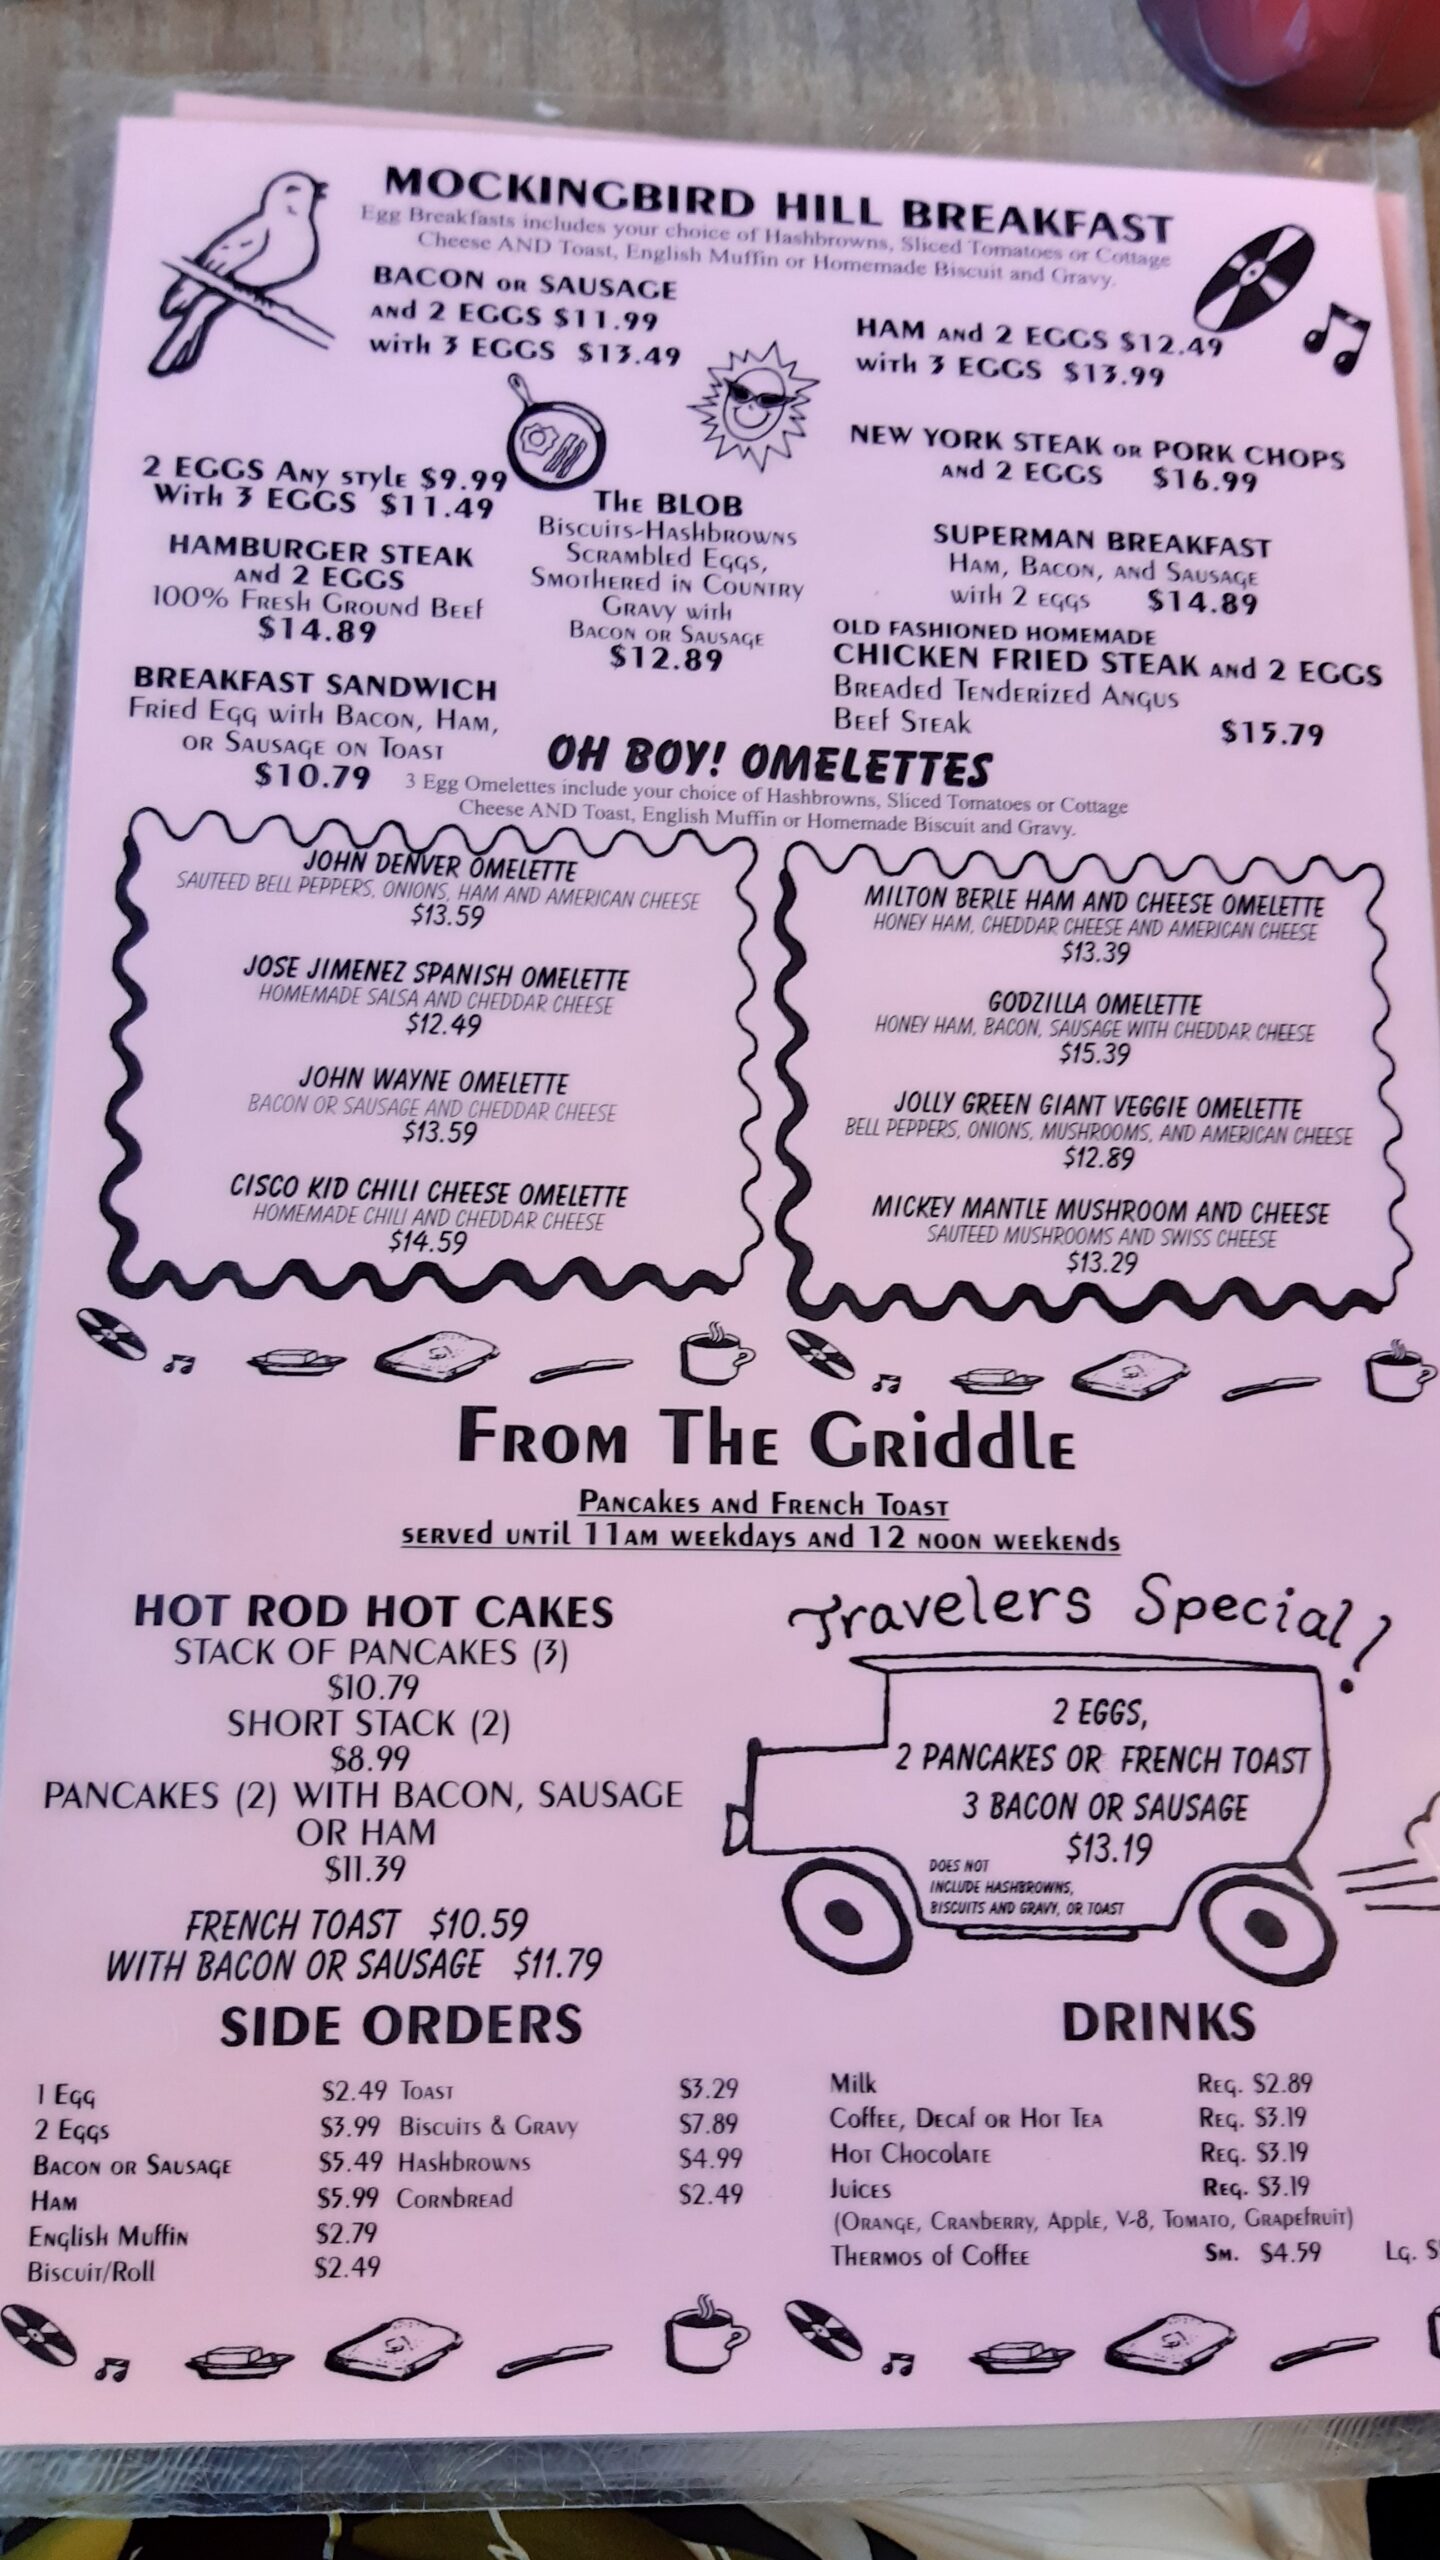 MOCKINGBIRD HILL BREAKFAST
Egg Breakfasts includes your choice of Hashbrowns, Sliced Tomatoes or Cottage
Cheese AND Toast, English Muffin or Homemade Biscuit and Gravy.
BACON OR SAUSAGE
AND 2 EGGS $11.99
with 3 EGGS $13.49
HAM and 2 EGGS $12.49
with 3 EGGS $13.99
2 EGGS Any style $9.99
With 3 EGGS $11.49
NEW YORK STEAK OR PORK CHOPS
AND 2 EGGS $16.99
HAMBURGER STEAK
AND 2 EGGS
100% Fresh Ground Beef
$14.89
The BLOB
Biscuits-Hashbrowns
Scrambled Eggs,
Smothered in Country
Gravy with
Bacon or Sausage
$12.89
SUPERMAN BREAKFAST
Ham, Bacon, and Sausage
with 2 eggs $14.89
OLD FASHIONED HOMEMADE
CHICKEN FRIED STEAK and 2 EGGS
Breaded Tenderized Angus
Beef Steak $15.79
BREAKFAST SANDWICH
Fried Egg with Bacon, Ham,
or Sausage on Toast
$10.79
OH BOY! OMELETTES
3 Egg Omelettes include your choice of Hashbrowns, Sliced Tomatoes or Cottage
Cheese AND Toast, English Muffin or Homemade Biscuit and Gravy.
JOHN DENVER OMELETTE
SAUTEED BELL PEPPERS, ONIONS, HAM AND AMERICAN CHEESE
$13.59
JOSE JIMENEZ SPANISH OMELETTE
HOMEMADE SALSA AND CHEDDAR CHEESE
$12.49
JOHN WAYNE OMELETTE
BACON OR SAUSAGE AND CHEDDAR CHEESE
$13.59
CISCO KID CHILI CHEESE OMELETTE
HOMEMADE CHILI AND CHEDDAR CHEESE
$14.59
MILTON BERLE HAM AND CHEESE OMELETTE
HONEY HAM, CHEDDAR CHEESE AND AMERICAN CHEESE
$13.39
GODZILLA OMELETTE
HONEY HAM, BACON, SAUSAGE WITH CHEDDAR CHEESE
$15.39
JOLLY GREEN GIANT VEGGIE OMELETTE
BELL PEPPERS, ONIONS, MUSHROOMS, AND AMERICAN CHEESE
$12.89
MICKEY MANTLE MUSHROOM AND CHEESE
SAUTEED MUSHROOMS AND SWISS CHEESE
$13.29
From The Griddle
Pancakes and French Toast
served until 11am weekdays and 12 noon weekends
HOT ROD HOT CAKES
STACK OF PANCAKES (3)
$10.79
SHORT STACK (2)
$8.99
PANCAKES (2) WITH BACON, SAUSAGE
OR HAM
$11.39
FRENCH TOAST $10.59
WITH BACON OR SAUSAGE $11.79
Travelers Special!
2 EGGS,
2 PANCAKES OR FRENCH TOAST
3 BACON OR SAUSAGE
$13.19
DOES NOT
INCLUDE HASHBROWNS,
BISCUITS AND GRAVY, OR TOAST
SIDE ORDERS
1 Egg $2.49 Toast $3.29
2 Eggs $3.99 Biscuits & Gravy $7.89
Bacon or Sausage $5.49 Hashbrowns $4.99
Ham $5.99 Cornbread $2.49
English Muffin $2.79
Biscuit/Roll $2.49
DRINKS
Milk Reg. $2.89
Coffee, Decaf or Hot Tea Reg. $3.19
Hot Chocolate Reg. $3.19
Juices Reg. $3.19
(Orange, Cranberry, Apple, V-8, Tomato, Grapefruit)
Thermos of Coffee Sm. $4.59 Lg.